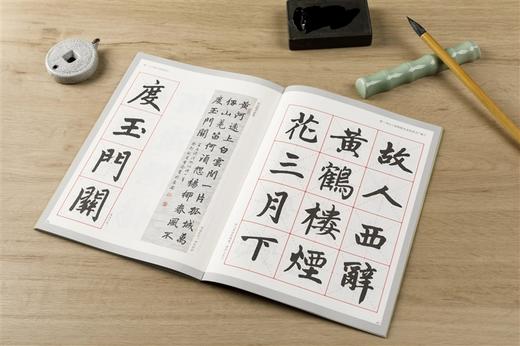 度玉門關
黄河遠上白雲間一片孤城萬
仞山羌笛何須怨楊柳春風不
度玉門關
故人西辭
黄鶴樓煙
花三月下